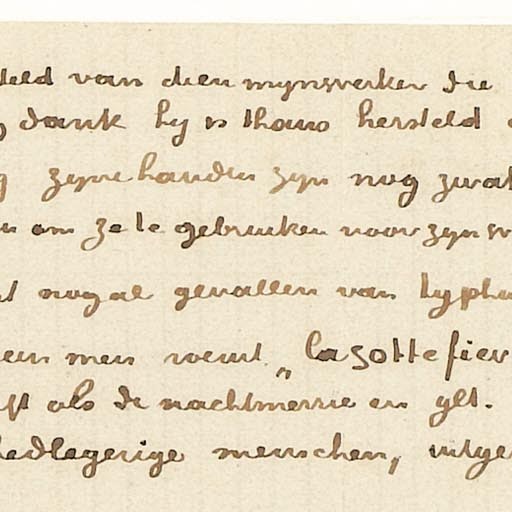 van dien mynwerker die
dank hy is thans hersteld
zyne handen zyn nog zwak
om ze te gebruiken voor zyn
nogal gevallen van typhu
men noemt „la sotte fiev
als de nachtmerrie en ylt.
bedlegerige menschen, uitge